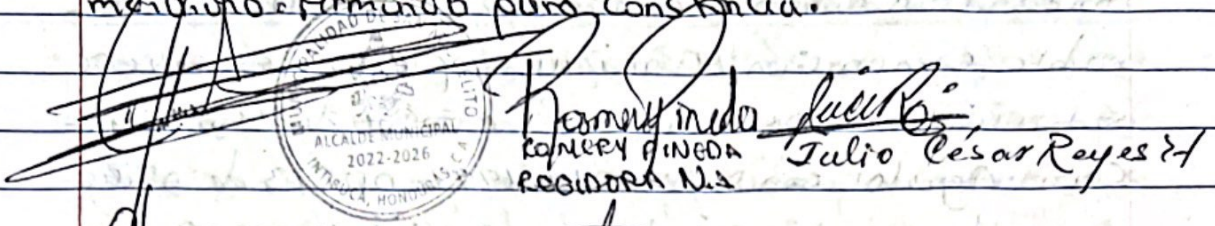 meridiano. Firmando para constancia.
ALCALDE MUNICIPAL
2022-2026
INTIBUCÁ, HONDURAS, C.A
Romery Pineda
ROMERY PINEDA
REGIDORA N.1
Julio César Reyes H